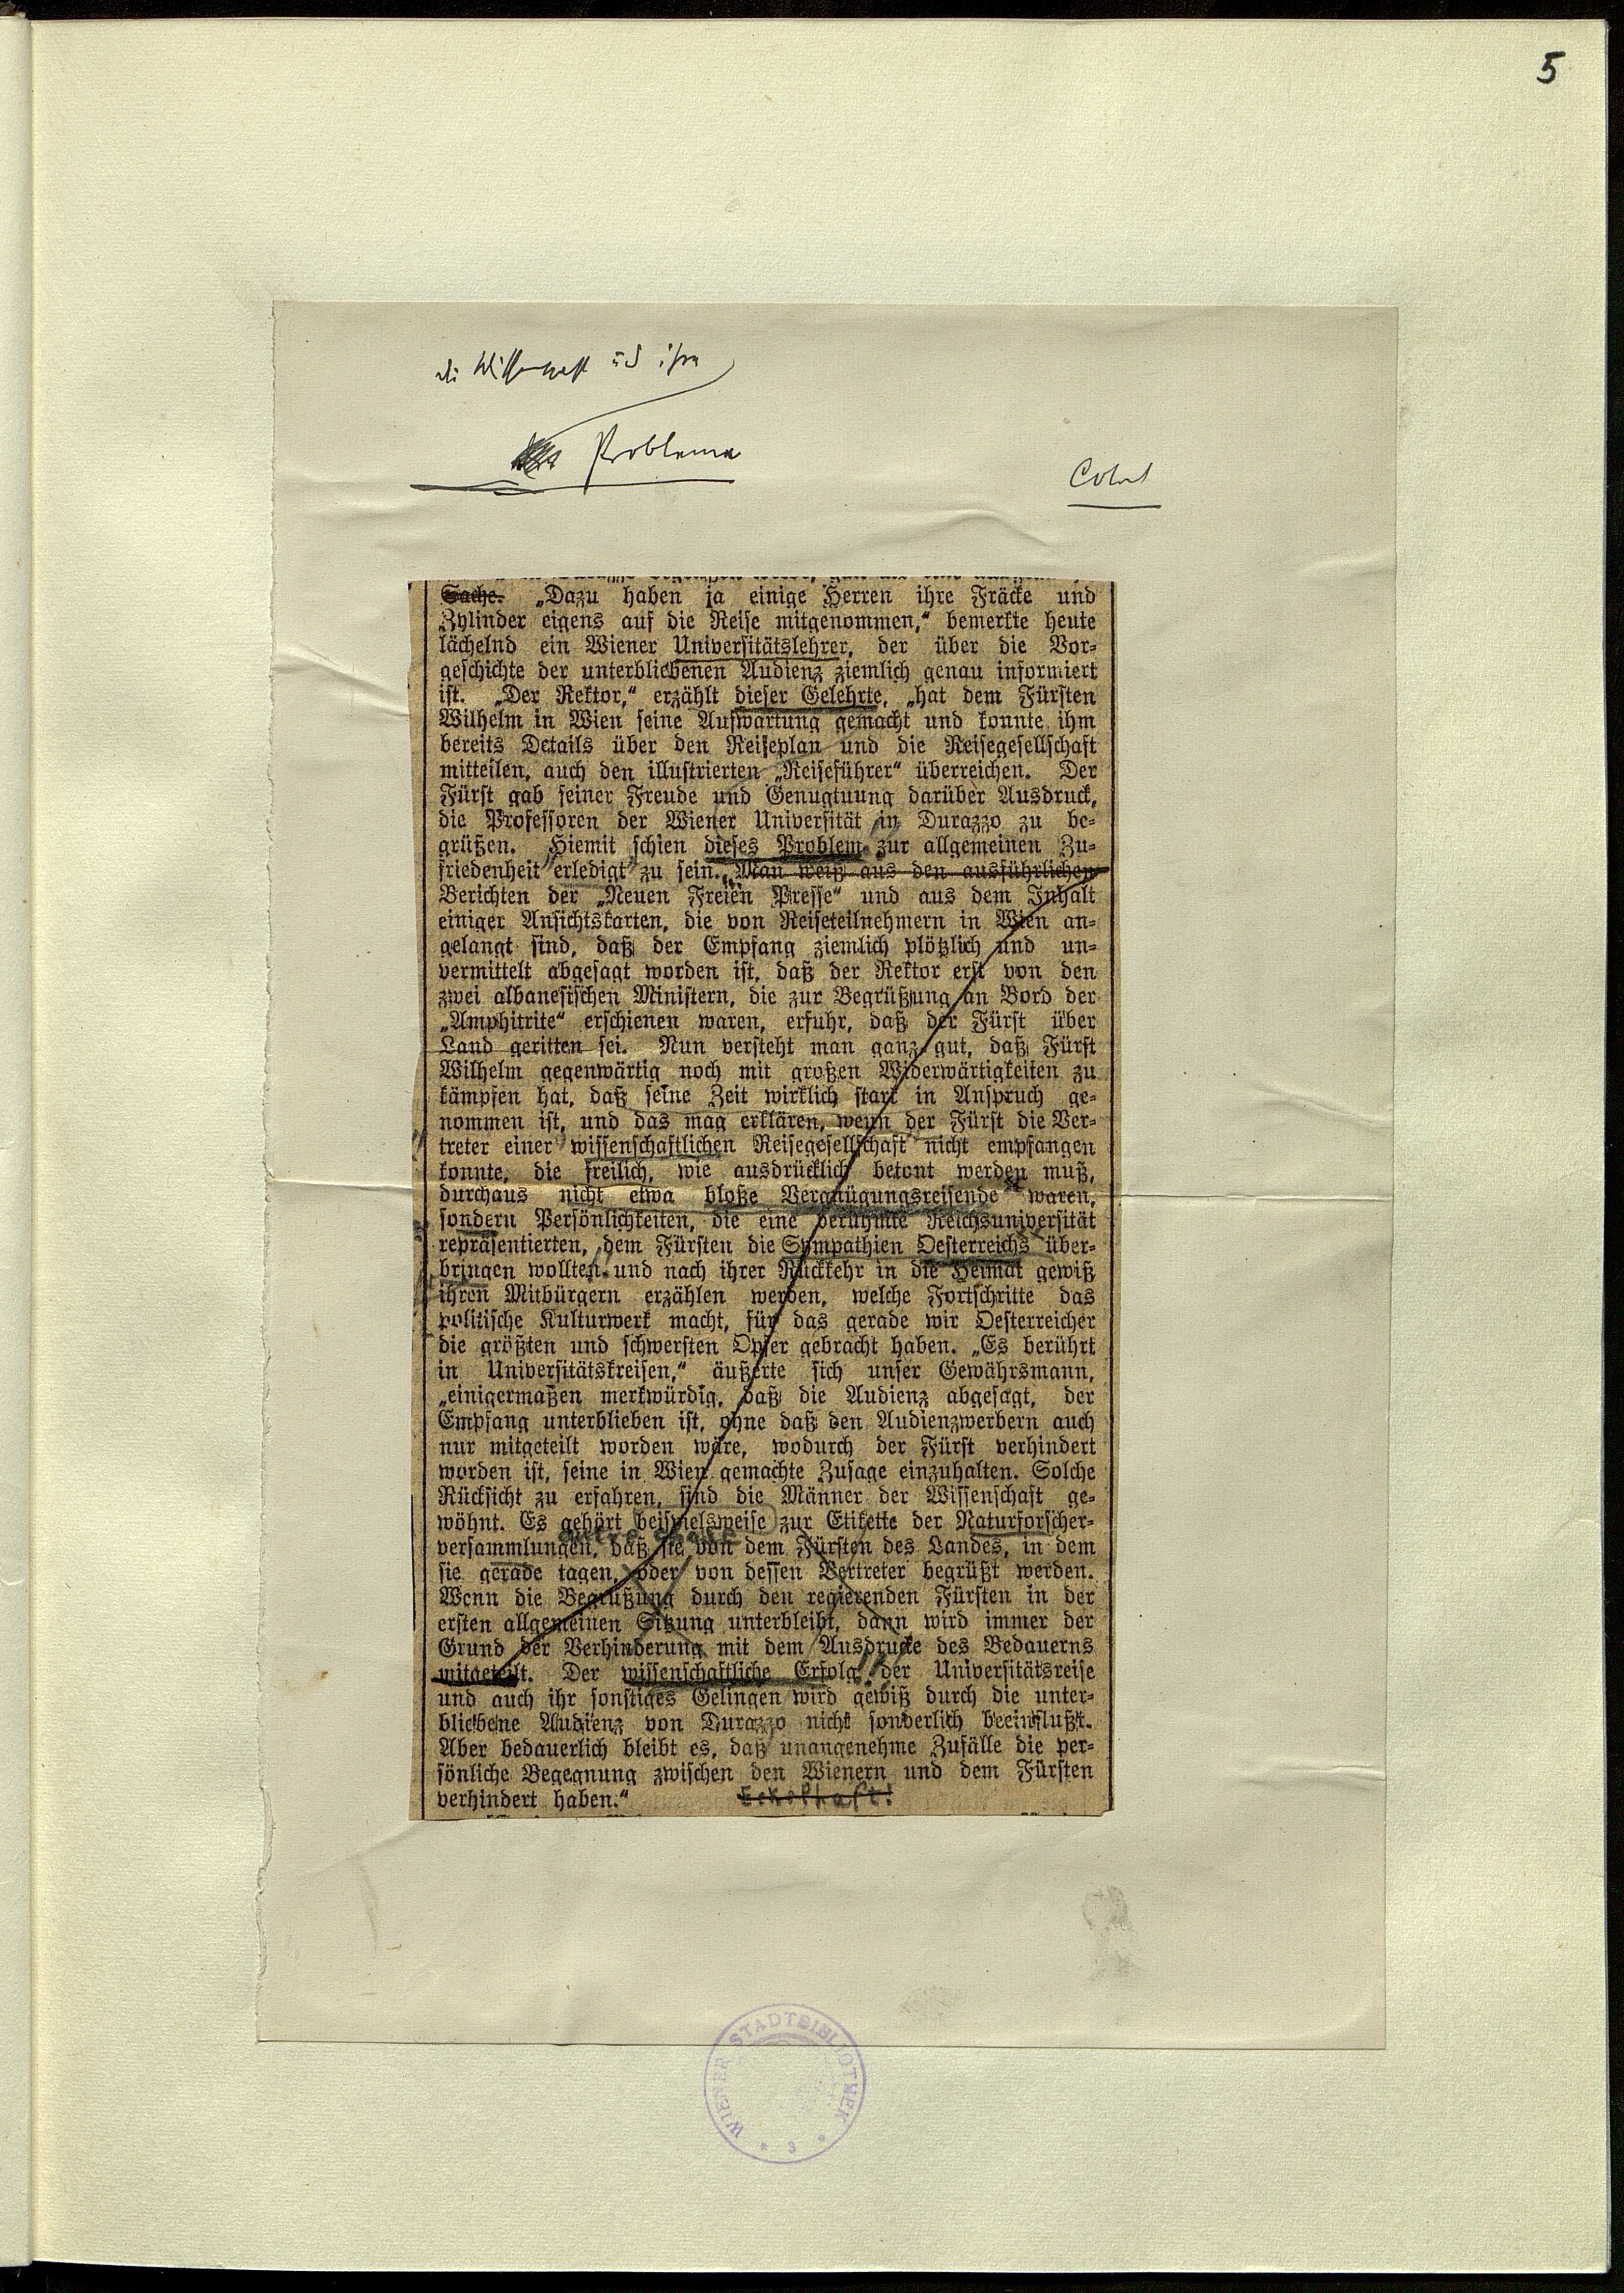 5
die Wissenschaft und ihre
Probleme
Sache. „Dazu haben ja einige Herren ihre Fräcke und
Zylinder eigens auf die Reise mitgenommen,“ bemerkte heute
lächelnd ein Wiener Universitätslehrer, der über die Vor-
geschichte der unterbliebenen Audienz ziemlich genau informiert
ist. „Der Rektor,“ erzählt dieser Gelehrte, „hat dem Fürsten
Wilhelm in Wien seine Aufwartung gemacht und konnte ihm
bereits Details über den Reiseplan und die Reisegesellschaft
mitteilen, auch den illustrierten „Reiseführer“ überreichen. Der
Fürst gab seiner Freude und Genugtuung darüber Ausdruck,
die Professoren der Wiener Universität in Durazzo zu be-
grüßen. Hiemit schien dieses Problem zur allgemeinen Zu-
friedenheit erledigt zu sein. Man weiß aus den ausführlichen
Berichten der „Neuen Freien Presse“ und aus dem Inhalt
einiger Ansichtskarten, die von Reiseteilnehmern in Wien an-
gelangt sind, daß der Empfang ziemlich plötzlich und un-
vermittelt abgesagt worden ist, daß der Rektor erst von den
zwei albanesischen Ministern, die zur Begrüßung an Bord der
„Amphitrite“ erschienen waren, erfuhr, daß der Fürst über
Land geritten sei. Nun versteht man ganz gut, daß Fürst
Wilhelm gegenwärtig noch mit großen Widerwärtigkeiten zu
kämpfen hat, daß seine Zeit wirklich stark in Anspruch ge-
nommen ist, und das mag erklären, wenn der Fürst die Ver-
treter einer wissenschaftlichen Reisegesellschaft nicht empfangen
konnte, die freilich, wie ausdrücklich betont werden muß,
durchaus nicht etwa bloße Vergnügungsreisende waren,
sondern Persönlichkeiten, die eine berühmte Reichsuniversität
repräsentierten, dem Fürsten die Sympathien Oesterreichs über-
bringen wollten und nach ihrer Rückkehr in die Heimat gewiß
ihren Mitbürgern erzählen werden, welche Fortschritte das
politische Kulturwerk macht, für das gerade wir Oesterreicher
die größten und schwersten Opfer gebracht haben. „Es berührt
in Universitätskreisen,“ äußerte sich unser Gewährsmann,
„einigermaßen merkwürdig, daß die Audienz abgesagt, der
Empfang unterblieben ist, ohne daß den Audienzwerbern auch
nur mitgeteilt worden wäre, wodurch der Fürst verhindert
worden ist, seine in Wien gemachte Zusage einzuhalten. Solche
Rücksicht zu erfahren, sind die Männer der Wissenschaft ge-
wöhnt. Es gehört beispielsweise zur Etikette der Naturforscher-
versammlungen, daß sie von dem Fürsten des Landes, in dem
sie gerade tagen, oder von dessen Vertreter begrüßt werden.
Wenn die Begrüßung durch den regierenden Fürsten in der
ersten allgemeinen Sitzung unterbleibt, dann wird immer der
Grund der Verhinderung mit dem Ausdrucke des Bedauerns
mitgeteilt. Der wissenschaftliche Erfolg der Universitätsreise
und auch ihr sonstiges Gelingen wird gewiß durch die unter-
bliebene Audienz von Durazzo nicht sonderlich beeinflußt.
Aber bedauerlich bleibt es, daß unangenehme Zufälle die per-
sönliche Begegnung zwischen den Wienern und dem Fürsten
verhindert haben.“ Ekelhaft!
WIENER STADTBIBLIOTHEK
* 3 *